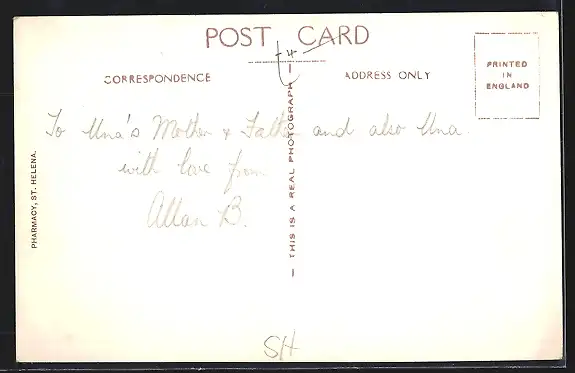 POST CARD
4
CORRESPONDENCE
ADDRESS ONLY
PRINTED
IN
ENGLAND
To Una's Mother & Father and also Una.
with love from
Allan B.
THIS IS A REAL PHOTOGRAPH
PHARMACY, ST. HELENA.
SH